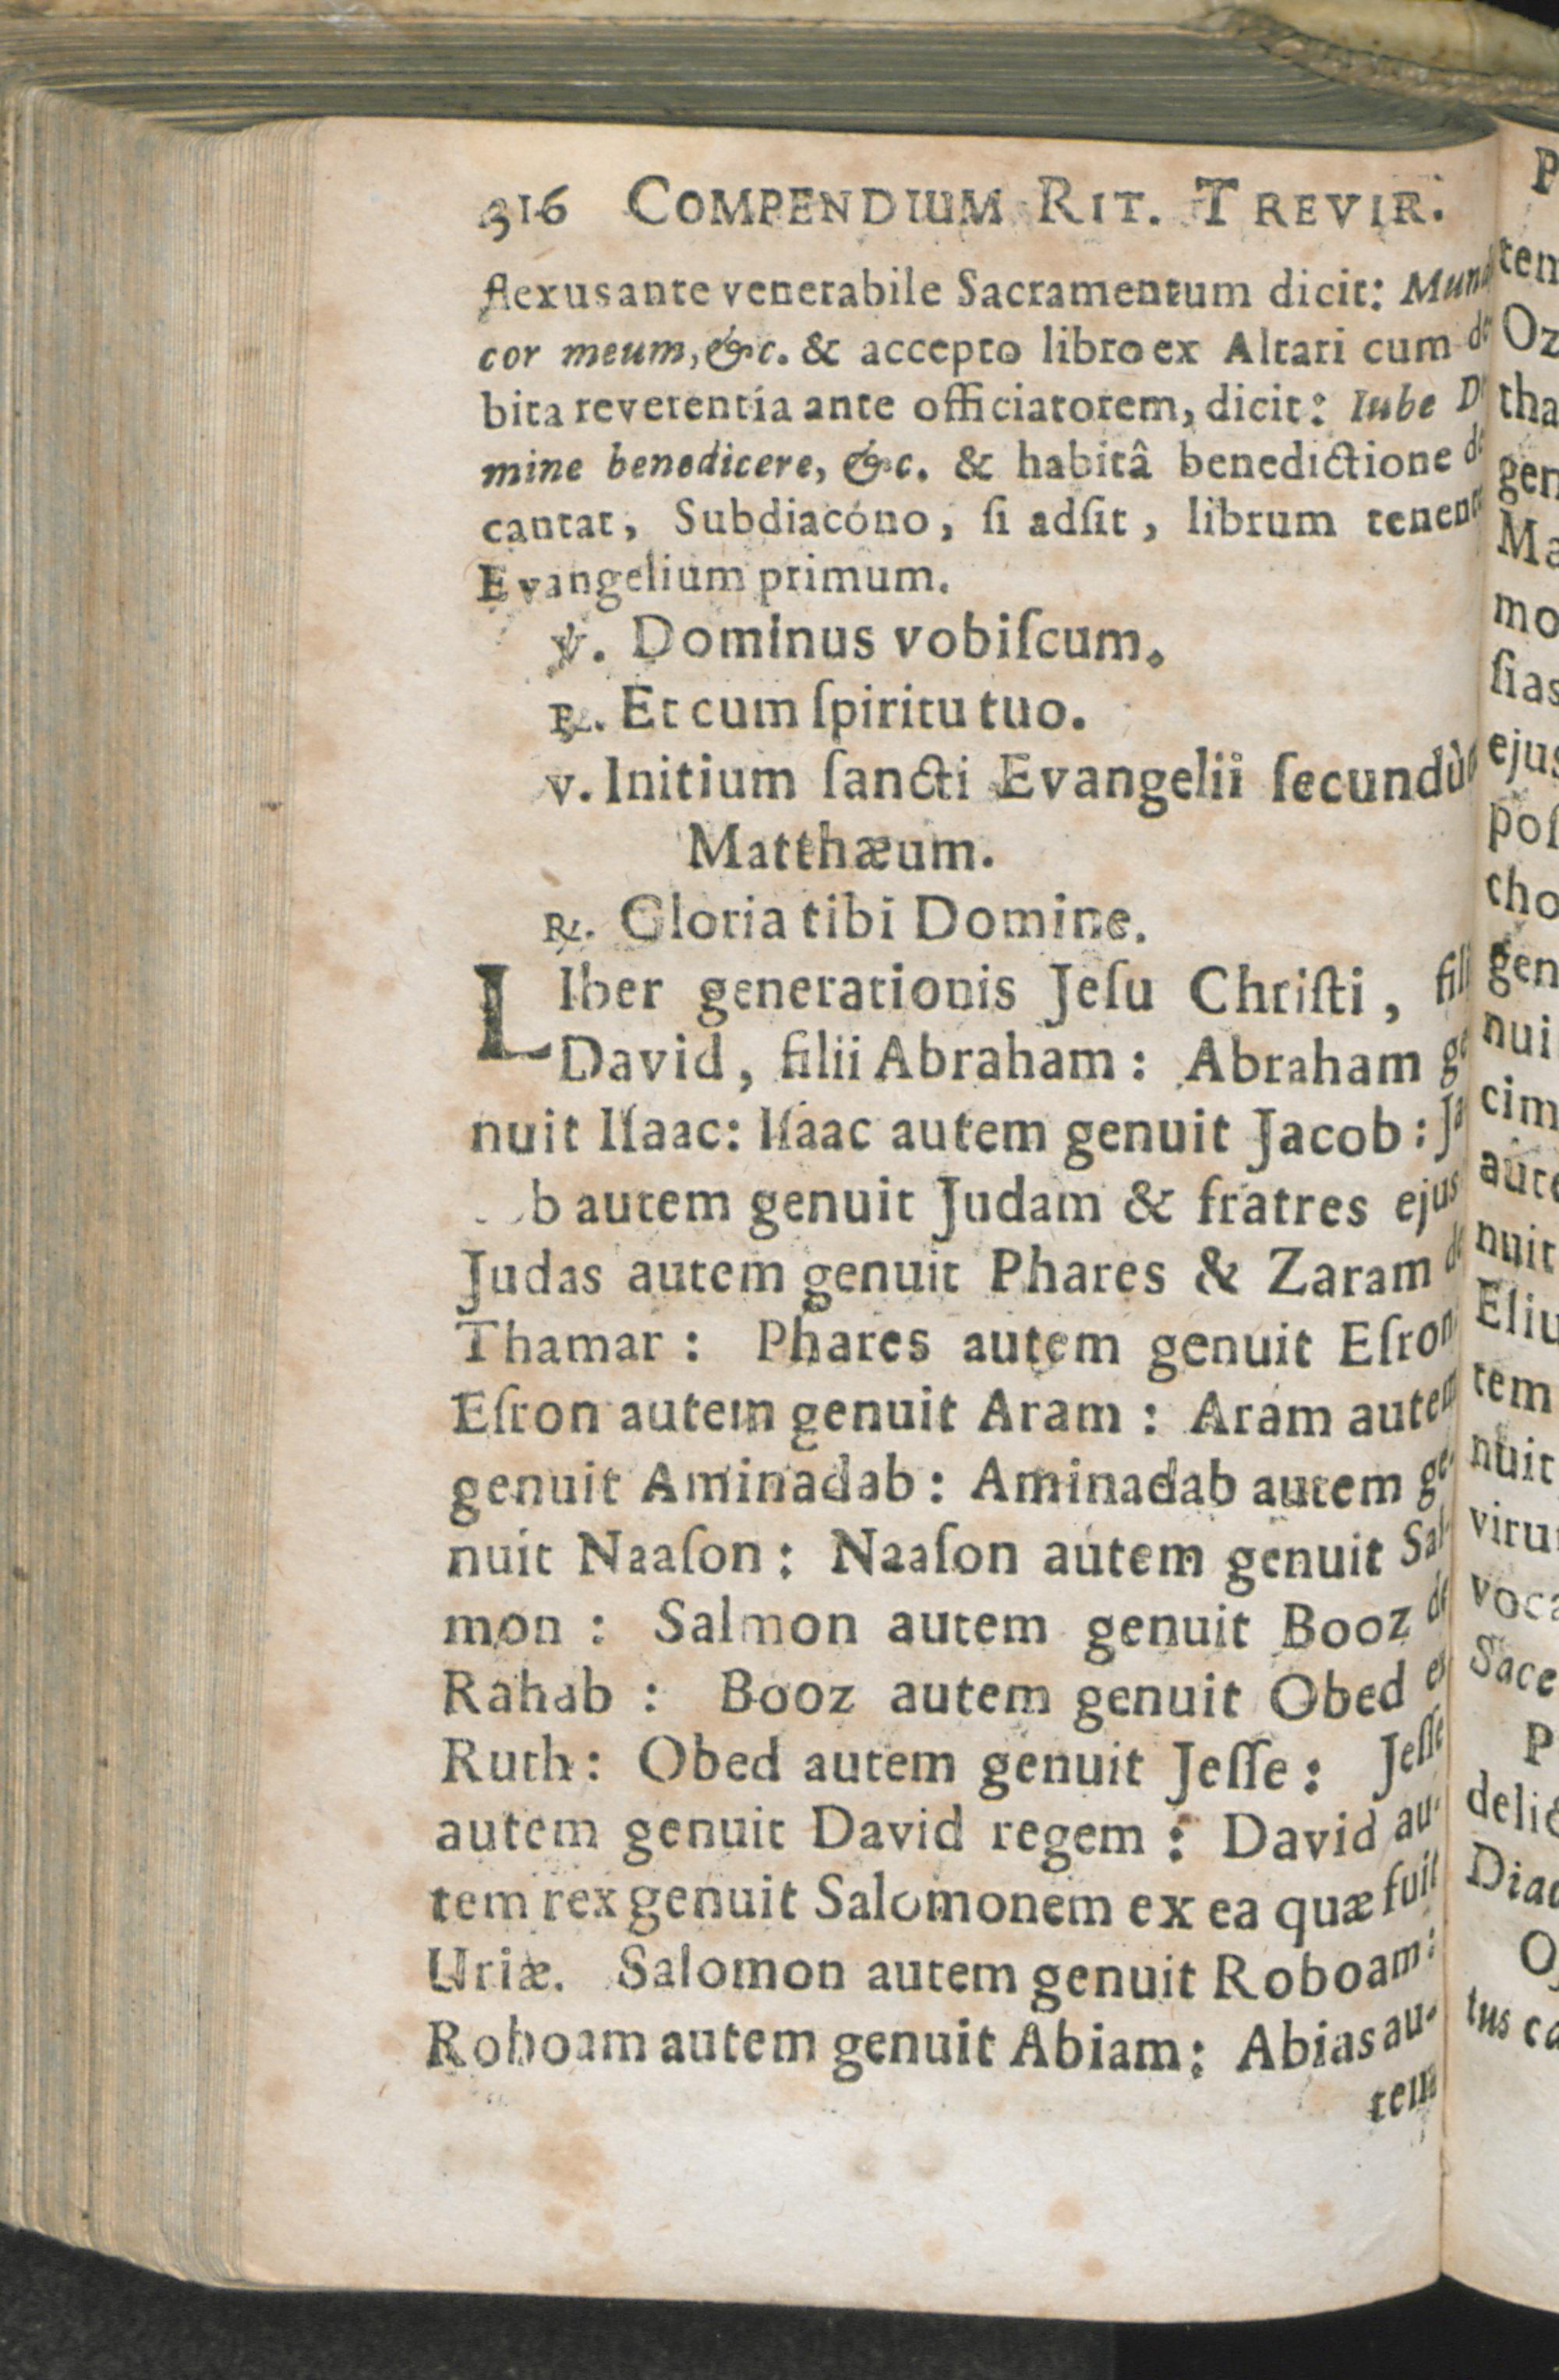 316 COMPENDIUM RIT. TREVIR.
flexus ante venerabile Sacramentum dicit: Mund
cor meum, &c. & accepto libro ex Altari cum de
bita reverentia ante officiatorem, dicit: Iube D
mine benedicere, &c. & habitâ benedictione de
cantat, Subdiacono, ſi adſit, librum tenente
Evangelium primum.
℣. Dominus vobiſcum.
℟. Et cum ſpiritu tuo.
v. Initium ſancti Evangelii ſecundù
Matthæum.
℟. Gloria tibi Domine.
LIber generationis Jeſu Chriſti, fili
David, filii Abraham: Abraham ge
nuit Iſaac: Iſaac autem genuit Jacob: Ja
b autem genuit Judam & fratres ejus
Judas autem genuit Phares & Zaram de
Thamar: Phares autem genuit Eſron
Eſron autem genuit Aram: Aram autem
genuit Aminadab: Aminadab autem ge-
nuit Naaſon: Naaſon autem genuit Sal-
mon: Salmon autem genuit Booz de
Rahab: Booz autem genuit Obed ex
Ruth: Obed autem genuit Jeſſe: Jeſſe
autem genuit David regem: David au-
tem rex genuit Salomonem ex ea quæ fuit
Uriæ. Salomon autem genuit Roboam:
Roboam autem genuit Abiam: Abias au-
tem
P
tem
Oz
tha
gen
Ma
mo
ſias
ejus
poſ
cho
gen
nui
cim
aute
nuit
Eliu
tem
nuit
viru
voca
Sace
P
delic
Diac
O
tus ca